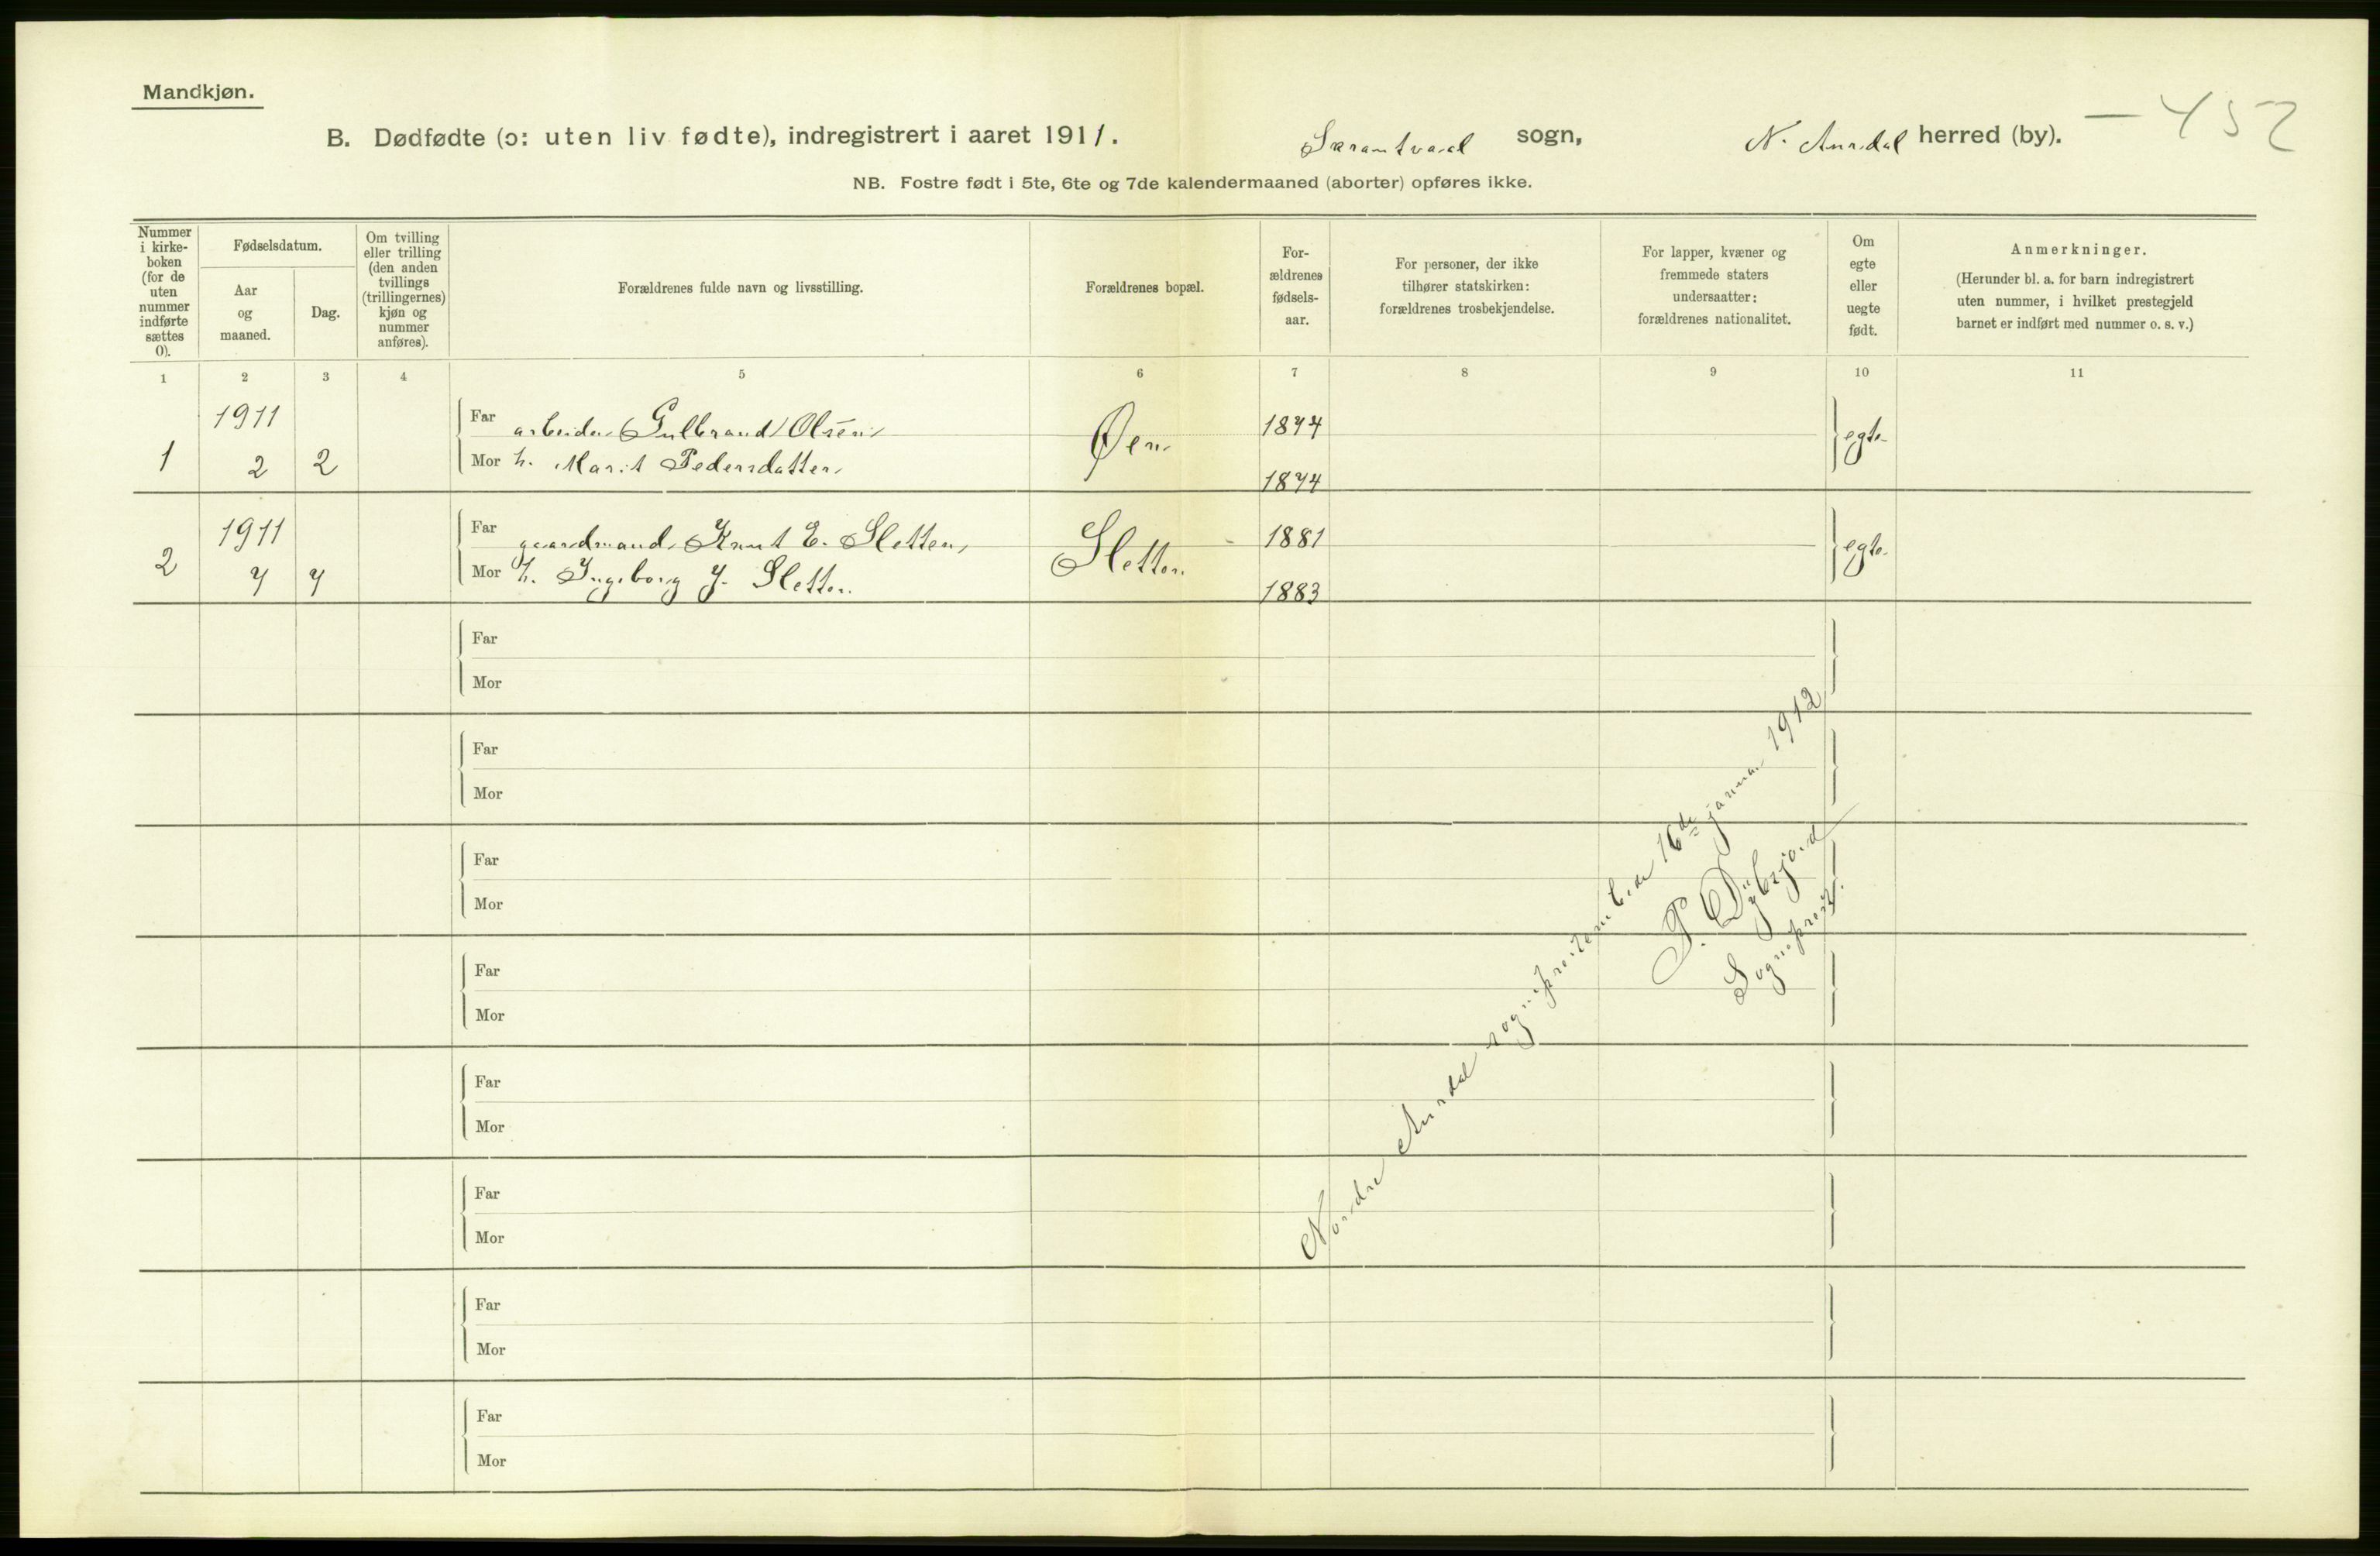 Mandkjøn.
B. Dødfødte (ɔ: uten liv fødte), indregistrert i aaret 1911. Skrautvaal sogn, N. Aurdal herred (by). — 452
NB. Fostre født i 5te, 6te og 7de kalendermaaned (aborter) opføres ikke.
Nummer i kirke-boken (for de uten nummer indførte sættes 0).
Fødselsdatum.
Aar og maaned.
Dag.
Om tvilling eller trilling (den anden tvillings (trillingernes) kjøn og nummer anføres).
Forældrenes fulde navn og livsstilling.
Forældrenes bopæl.
For-ældrenes fødsels-aar.
For personer, der ikke tilhører statskirken: forældrenes trosbekjendelse.
For lapper, kvæner og fremmede staters undersaatter: forældrenes nationalitet.
Om egte eller uegte født.
Anmerkninger.
(Herunder bl. a. for barn indregistrert uten nummer, i hvilket prestegjeld barnet er indført med nummer o. s. v.)
1 2 3 4 5 6 7 8 9 10 11
1911 Far arbeider Gulbrand Olsen Øen 1874 egte
1 2 2 Mor h. Marit Pedersdatter 1874
1911 Far gaardmand Knut E. Sletten Sletten 1881 egte
2 7 7 Mor h. Ingeborg J. Sletten 1883
Far
Mor
Far
Mor
Far
Mor
Far
Mor
Far
Mor
Far
Mor
Far
Mor
Far
Mor
Nordre Aurdal sogneprestembede 16de januar 1912
Sogneprest.